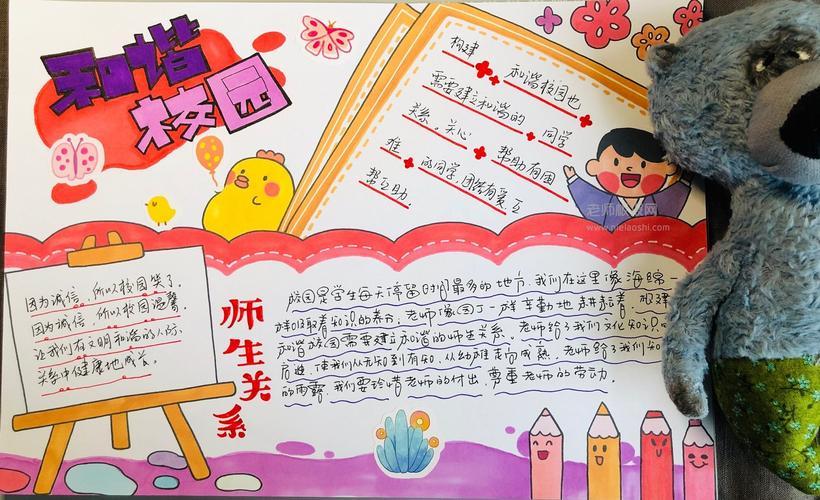 和谐
校园
构建 和谐校园也
需要建立和谐的 同学
关系。关心 帮助有困
难 的同学,团结有爱,互
帮互助。
老师板报网
因为诚信,所以校园笑了。
因为诚信,所以校园温馨。
让我们有文明和谐的人际
关系中健康地成长。
师生关系
校园是学生每天停留时间最多的地方。我们在这里像海绵一
样吸取着知识的养分,老师像园丁一样辛勤地耕耘着。构建
和谐校园需要建立和谐的师生关系。老师给了我们文化知识的
启迪,使我们从无知到有知,从幼稚走向成熟,老师给了我们知
的雨露,我们要珍惜老师的付出,尊重老师的劳动。